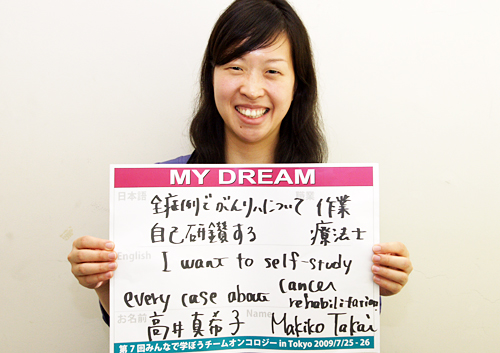 MY DREAM
日本語
職業
全症例どがんリハについて 作業
自己研鑽する 療法士
English
I want to self-study
every case about cancer rehabilitation
お名前 Name
高井真希子 Makiko Takai
第7回みんなで学ぼうチームオンコロジー in Tokyo 2009/7/25 - 26